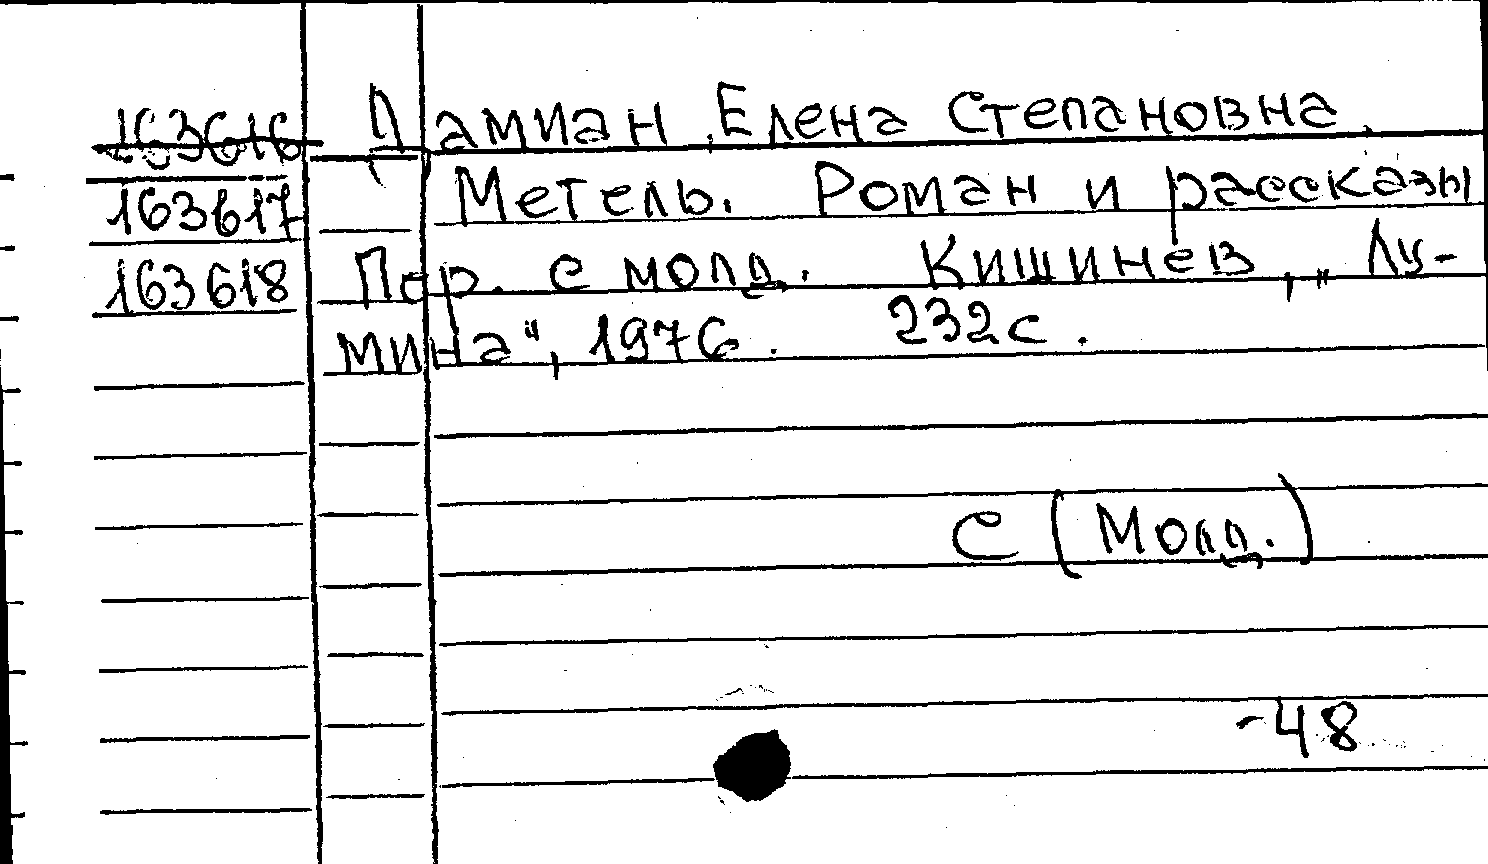 163616 Дамиан, Елена Степановна.
163617 Метель. Роман и рассказы
163618 Пер. с молд. Кишинев, „Лу-
мина", 1976. 232с.
С (Молд.)
-48